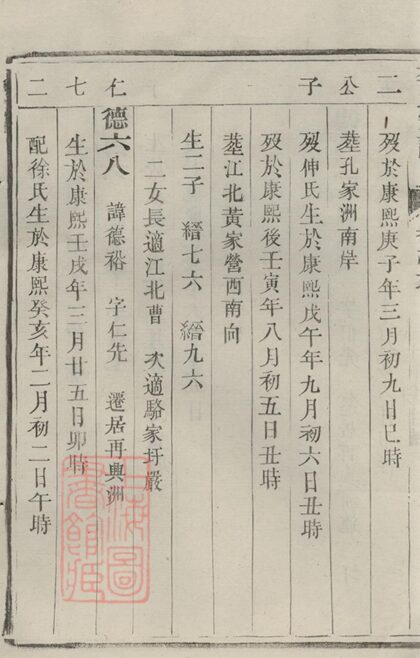 二 公 子 仁 七 二
歿於康熙庚子年三月初九日巳時
塟孔家洲南岸
歿伸氏生於康熙戊午年九月初六日丑時
歿於康熙後壬寅年八月初五日丑時
塟江北黃家營西南向
生二子 縉七六 縉九六
二女長適江北曹 次適駱家圩嚴
德六八 諱德裕 字仁先 遷居再興洲
生於康熙壬戌年三月廿五日卯時
配徐氏生於康熙癸亥年二月初二日午時
上海圖書館藏